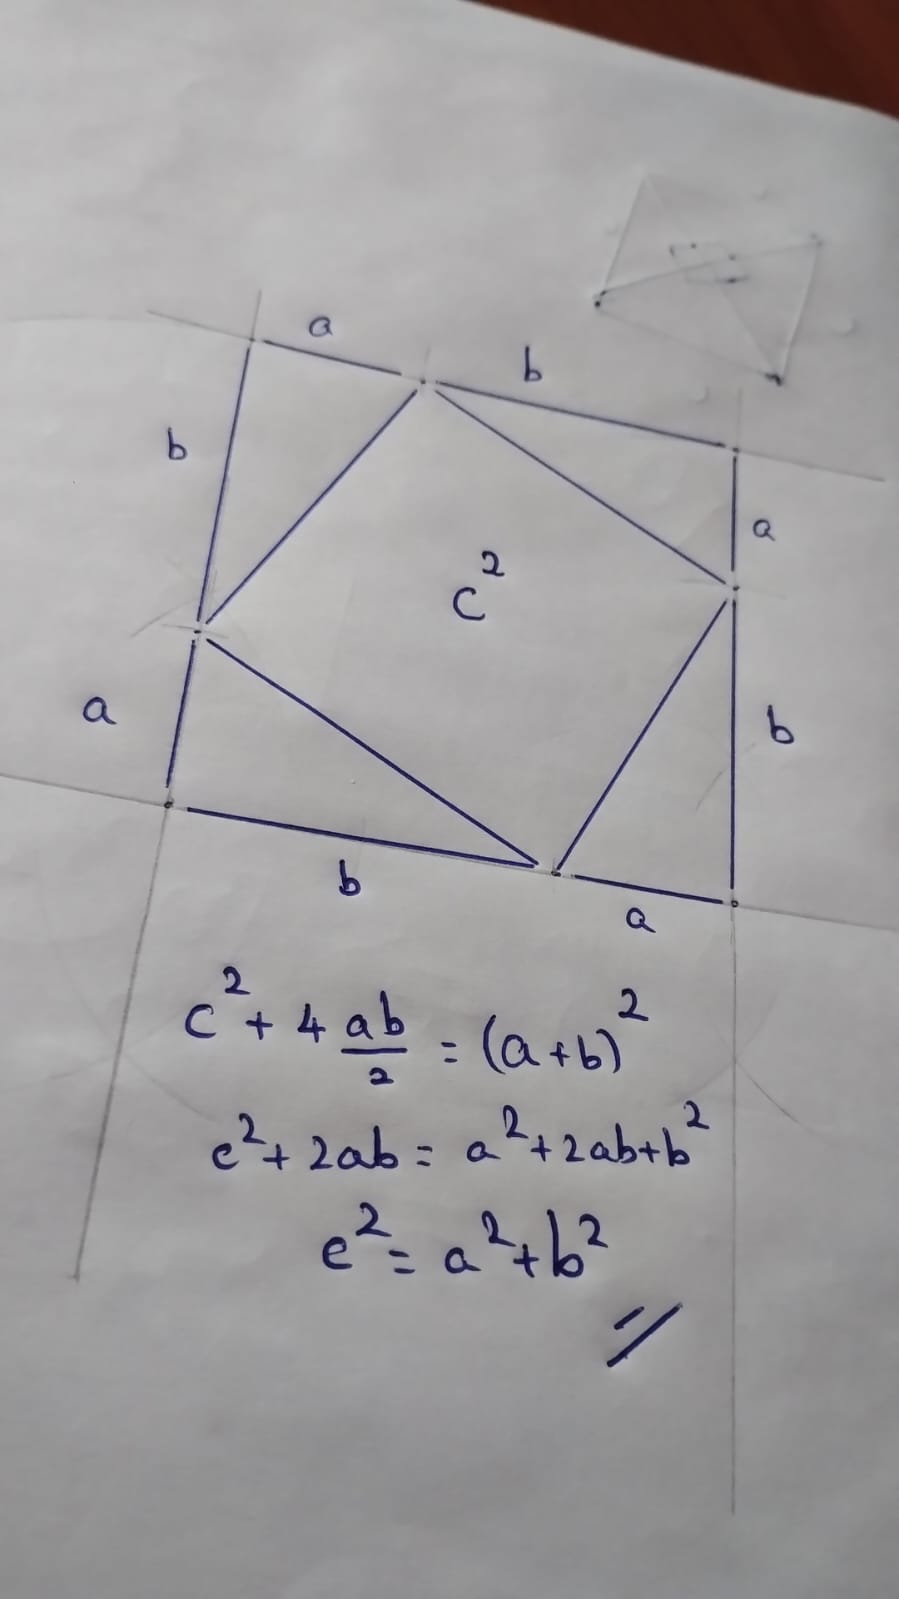 a
b
b
a
c²
a
b
b
a
c² + 4 ab/2 = (a+b)²
c² + 2ab = a² + 2ab + b²
c² = a² + b²